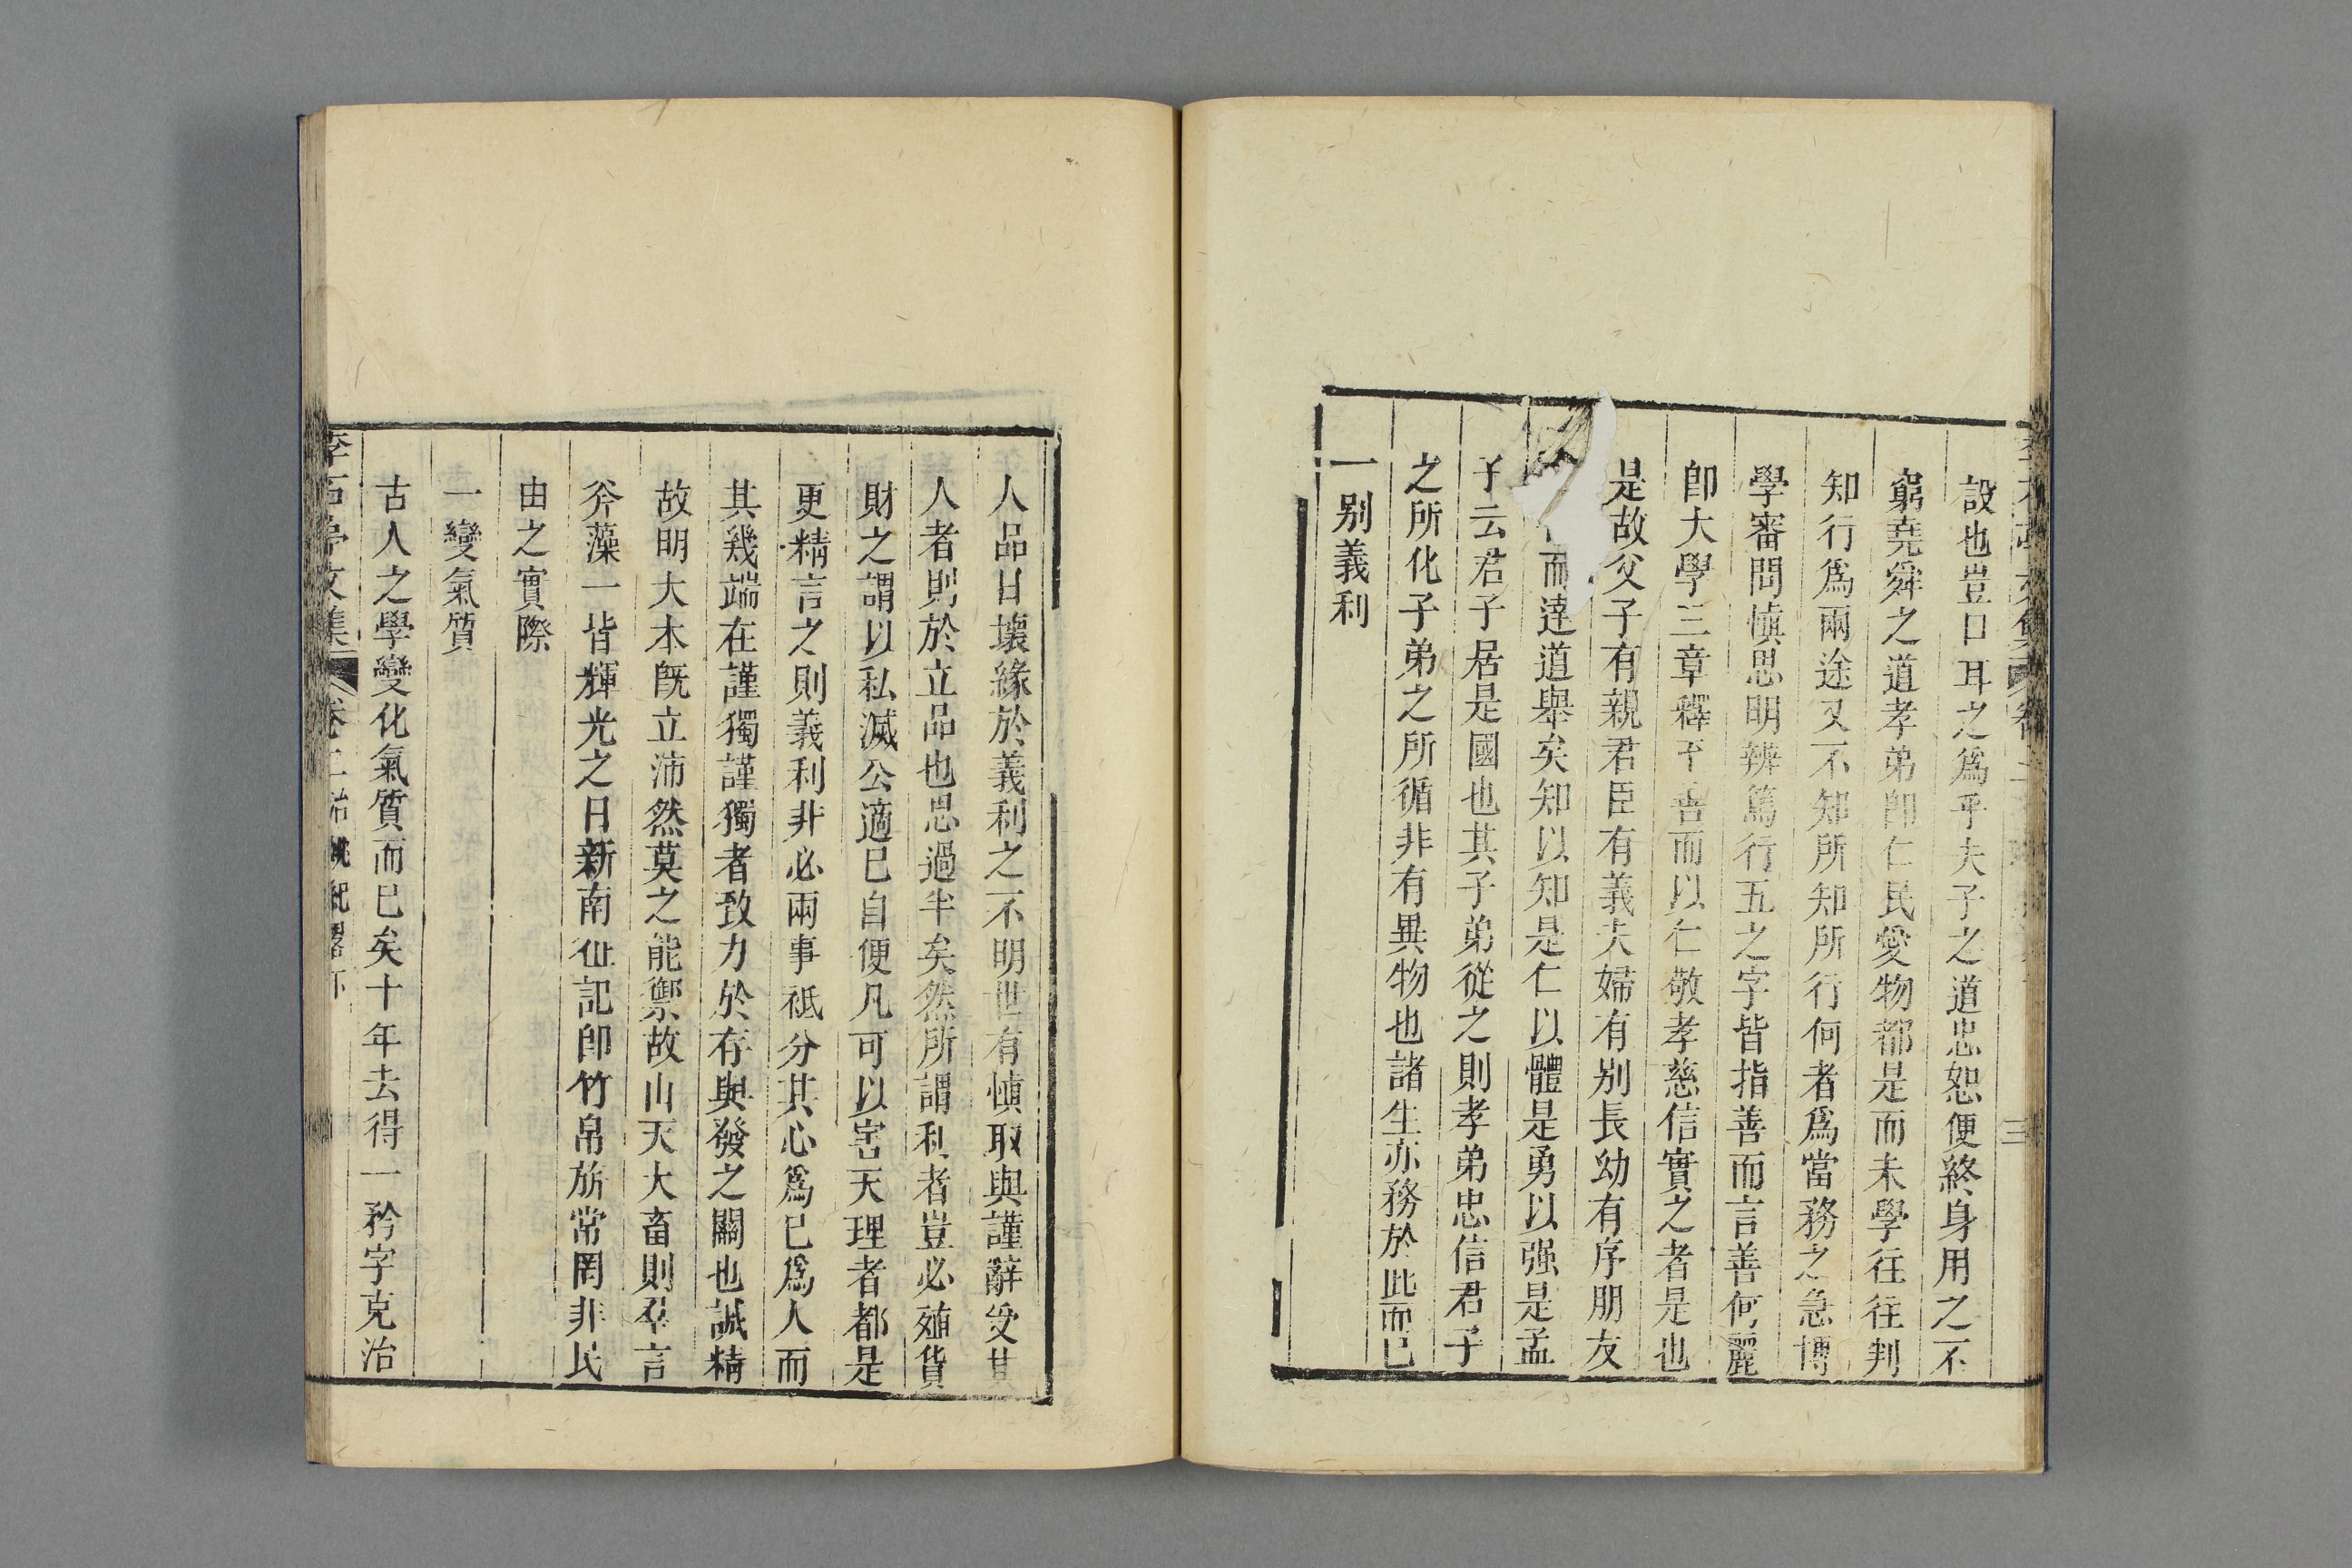 設也豈口耳之爲乎夫子之道忠恕便終身用之不
窮堯舜之道孝弟卽仁民愛物都是而未學往往判
知行爲兩途又不知所知所行何者爲當務之急博
學審問愼思明辨篤行五之字皆指善而言善何麗
卽大學三章釋至善而以仁敬孝慈信實之者是也
是故父子有親君臣有義夫婦有别長幼有序朋友
而達道舉矣知以知是仁以體是勇以强是孟
子云君子居是國也其子弟從之則孝弟忠信君子
之所化子弟之所循非有異物也諸生亦務於此而已
一别義利
三
人品日壞緣於義利之不明世有愼取與謹辭受其
人者則於立品也思過半矣然所謂利者豈必殖貨
財之謂以私滅公適已自便凡可以害天理者都是
更精言之則義利非必兩事祗分其心爲已爲人而
其幾端在謹獨謹獨者致力於存與發之關也誠精
故明大本旣立沛然莫之能禦故山天大畜則羣言
斧藻一皆輝光之日新南征記卽竹帛旂常罔非民
由之實際
一變氣質
古人之學變化氣質而已矣十年去得一矜字克治
李石亭文集 卷二